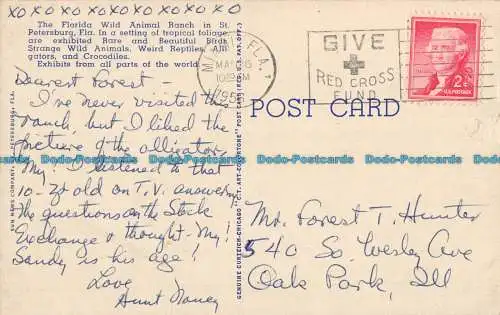 XOXOXOXOXOXOXOXO
The Florida Wild Animal Ranch in St.
Petersburg, Fla. In a setting of tropical foliage
are exhibited Rare and Beautiful Birds,
Strange Wild Animals, Weird Reptiles, Alli-
gators, and Crocodiles.
Exhibits from all parts of the world.
Dearest Forest -
I've never visited the
ranch, but I liked the
picture of the alligator.
My! I listened to that
10-yr old on T.V. answering
the questions on the Stock
Exchange & thought - My!
Sandy is his age!
Love
Aunt Nancy
SUN NEWS COMPANY, ST. PETERSBURG, FLA.
GENUINE CURTEICH-CHICAGO "C.T. ART-COLORTONE" POST CARD (REG. U.S. PAT. OFF.)
FLA.
GIVE
RED CROSS
FUND
2¢
U.S. POSTAGE
POST CARD
Mr. Forest T. Hunter
540 So. Wesley Ave
Oak Park, Ill
Dodo-Postcards Dodo-Postcards Dodo-Postcards Dodo-Postcards